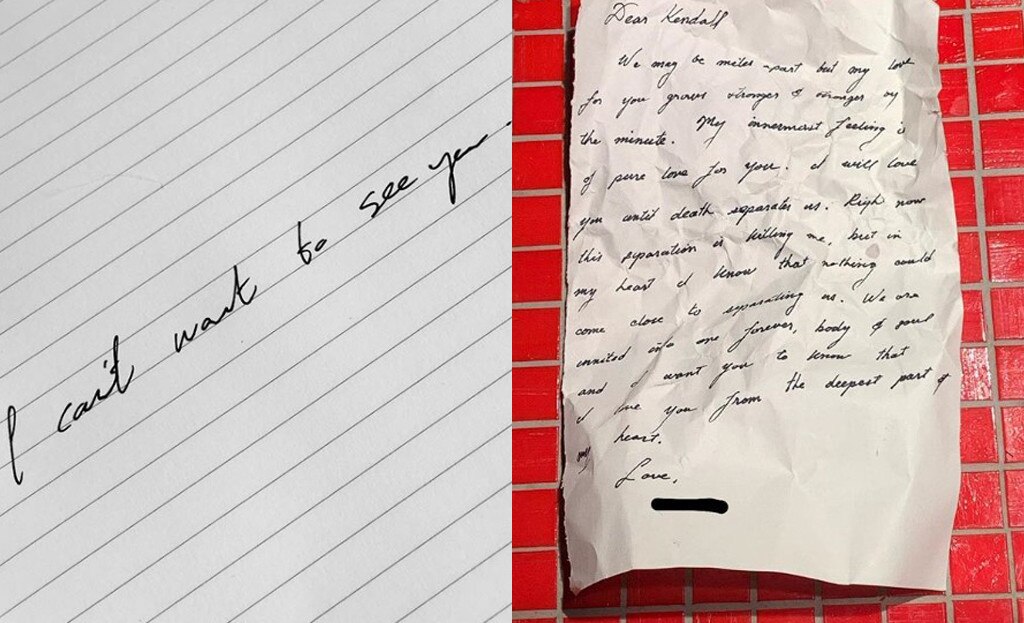 I can't wait to see you.
Dear Kendall
We may be miles apart but my love
for you grows stronger & stronger by
the minute. My innermost feeling is
of pure love for you. I will love
you until death separates us. Right now
this separation is killing me, but in
my heart I know that nothing could
come close to separating us. We are
united into one forever, body & soul
and I want you to know that
I love you from the deepest part of
my heart.
Love,